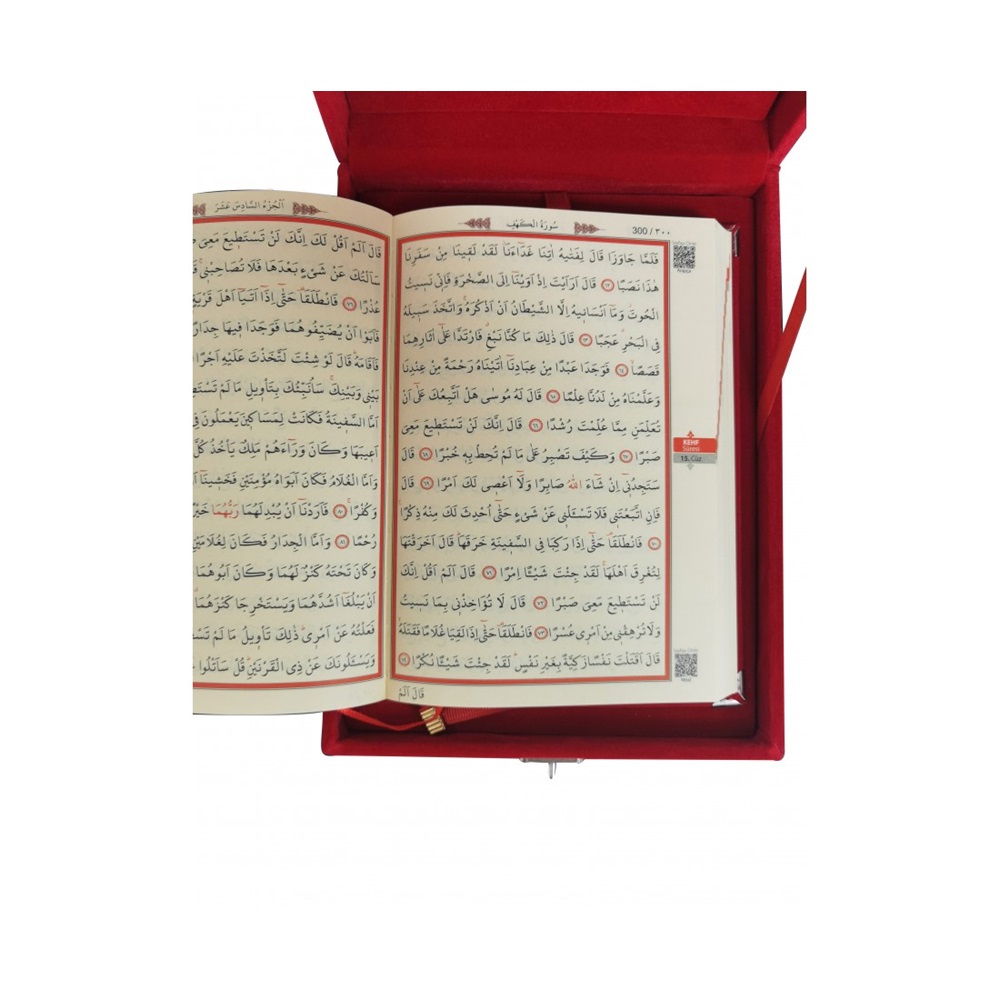 سُورَةُ الْكَهْفِ
300 / ٣٠٠
فَلَمَّا جَاوَزَا قَالَ لِفَتٰيهُ اٰتِنَا غَدَٓاءَنَاۘ لَقَدْ لَقٖينَا مِنْ سَفَرِنَا
هٰذَا نَصَبًا ﴿٦٢﴾ قَالَ اَرَاَيْتَ اِذْ اَوَيْنَٓا اِلَى الصَّخْرَةِ فَاِنّٖى نَسٖيتُ
الْحُوتَۘ وَمَٓا اَنْسَانٖيهُ اِلَّا الشَّيْطَانُ اَنْ اَذْكُرَهُۚ وَاتَّخَذَ سَبٖيلَهُ
فِى الْبَحْرِۗ عَجَبًا ﴿٦٣﴾ قَالَ ذٰلِكَ مَا كُنَّا نَبْغِۗ فَارْتَدَّا عَلٰٓى اٰثَارِهِمَا
قَصَصًاۙ ﴿٦٤﴾ فَوَجَدَا عَبْدًا مِنْ عِبَادِنَٓا اٰتَيْنَاهُ رَحْمَةً مِنْ عِنْدِنَا
وَعَلَّمْنَاهُ مِنْ لَدُنَّا عِلْمًا ﴿٦٥﴾ قَالَ لَهُ مُوسٰى هَلْ اَتَّبِعُكَ عَلٰٓى اَنْ
تُعَلِّمَنِ مِمَّا عُلِّمْتَ رُشْدًا ﴿٦٦﴾ قَالَ اِنَّكَ لَنْ تَسْتَطٖيعَ مَعِىَ
صَبْرًا ﴿٦٧﴾ وَكَيْفَ تَصْبِرُ عَلٰى مَا لَمْ تُحِطْ بِهٖ خُبْرًا ﴿٦٨﴾ قَالَ
سَتَجِدُنٖٓى اِنْ شَٓاءَ اللّٰهُ صَابِرًا وَلَٓا اَعْصٖى لَكَ اَمْرًا ﴿٦٩﴾ قَالَ
فَاِنِ اتَّبَعْتَنٖى فَلَا تَسْـَٔلْنٖى عَنْ شَىْءٍ حَتّٰٓى اُحْدِثَ لَكَ مِنْهُ ذِكْرًاۧ
﴿٧٠﴾ فَانْطَلَقَاۗ حَتّٰٓى اِذَا رَكِبَا فِى السَّفٖينَةِ خَرَقَهَاۜ قَالَ اَخَرَقْتَهَا
لِتُغْرِقَ اَهْلَهَاۚ لَقَدْ جِئْتَ شَيْـًٔا اِمْرًا ﴿٧١﴾ قَالَ اَلَمْ اَقُلْ اِنَّكَ
لَنْ تَسْتَطٖيعَ مَعِىَ صَبْرًا ﴿٧٢﴾ قَالَ لَا تُؤَاخِذْنٖى بِمَا نَسٖيتُ
وَلَا تُرْهِقْنٖى مِنْ اَمْرٖى عُسْرًا ﴿٧٣﴾ فَانْطَلَقَاۗ حَتّٰٓى اِذَا لَقِيَا غُلَامًا فَقَتَلَهُۙ
قَالَ اَقَتَلْتَ نَفْسًا زَكِيَّةً بِغَيْرِ نَفْسٍۜ لَقَدْ جِئْتَ شَيْـًٔا نُكْرًا ﴿٧٤﴾
قَالَ اَلَمْ
KEHF
Sûresi
15. Cüz
اَلْجُزْءُ السَّادِسَ عَشَرَ
قَالَ اَلَمْ اَقُلْ لَكَ اِنَّكَ لَنْ تَسْتَطٖيعَ مَعِىَ
سَاَلْتُكَ عَنْ شَىْءٍ بَعْدَهَا فَلَا تُصَاحِبْنٖى
عُذْرًا ﴿٧٦﴾ فَانْطَلَقَاۗ حَتّٰٓى اِذَٓا اَتَيَٓا اَهْلَ قَرْيَةٍ
فَاَبَوْا اَنْ يُضَيِّفُوهُمَا فَوَجَدَا فٖيهَا جِدَارًا
فَاَقَامَهُۜ قَالَ لَوْ شِئْتَ لَتَّخَذْتَ عَلَيْهِ اَجْرًا
بَيْنٖى وَبَيْنِكَۚ سَاُنَبِّئُكَ بِتَاْوٖيلِ مَا لَمْ
اَمَّا السَّفٖينَةُ فَكَانَتْ لِمَسَاكٖينَ يَعْمَلُونَ
اَعٖيبَهَا وَكَانَ وَرَٓاءَهُمْ مَلِكٌ يَاْخُذُ كُلَّ
وَاَمَّا الْغُلَامُ فَكَانَ اَبَوَاهُ مُؤْمِنَيْنِ فَخَشٖينَٓا
وَكُفْرًاۚ ﴿٨٠﴾ فَاَرَدْنَٓا اَنْ يُبْدِلَهُمَا رَبُّهُمَا
رُحْمًا ﴿٨١﴾ وَاَمَّا الْجِدَارُ فَكَانَ لِغُلَامَيْنِ
وَكَانَ تَحْتَهُ كَنْزٌ لَهُمَا وَكَانَ اَبُوهُمَا
اَنْ يَبْلُغَٓا اَشُدَّهُمَا وَيَسْتَخْرِجَا كَنْزَهُمَا
فَعَلْتُهُ عَنْ اَمْرٖىۜ ذٰلِكَ تَاْوٖيلُ مَا لَمْ
وَيَسْـَٔلُونَكَ عَنْ ذِى الْقَرْنَيْنِۜ قُلْ سَاَتْلُوا